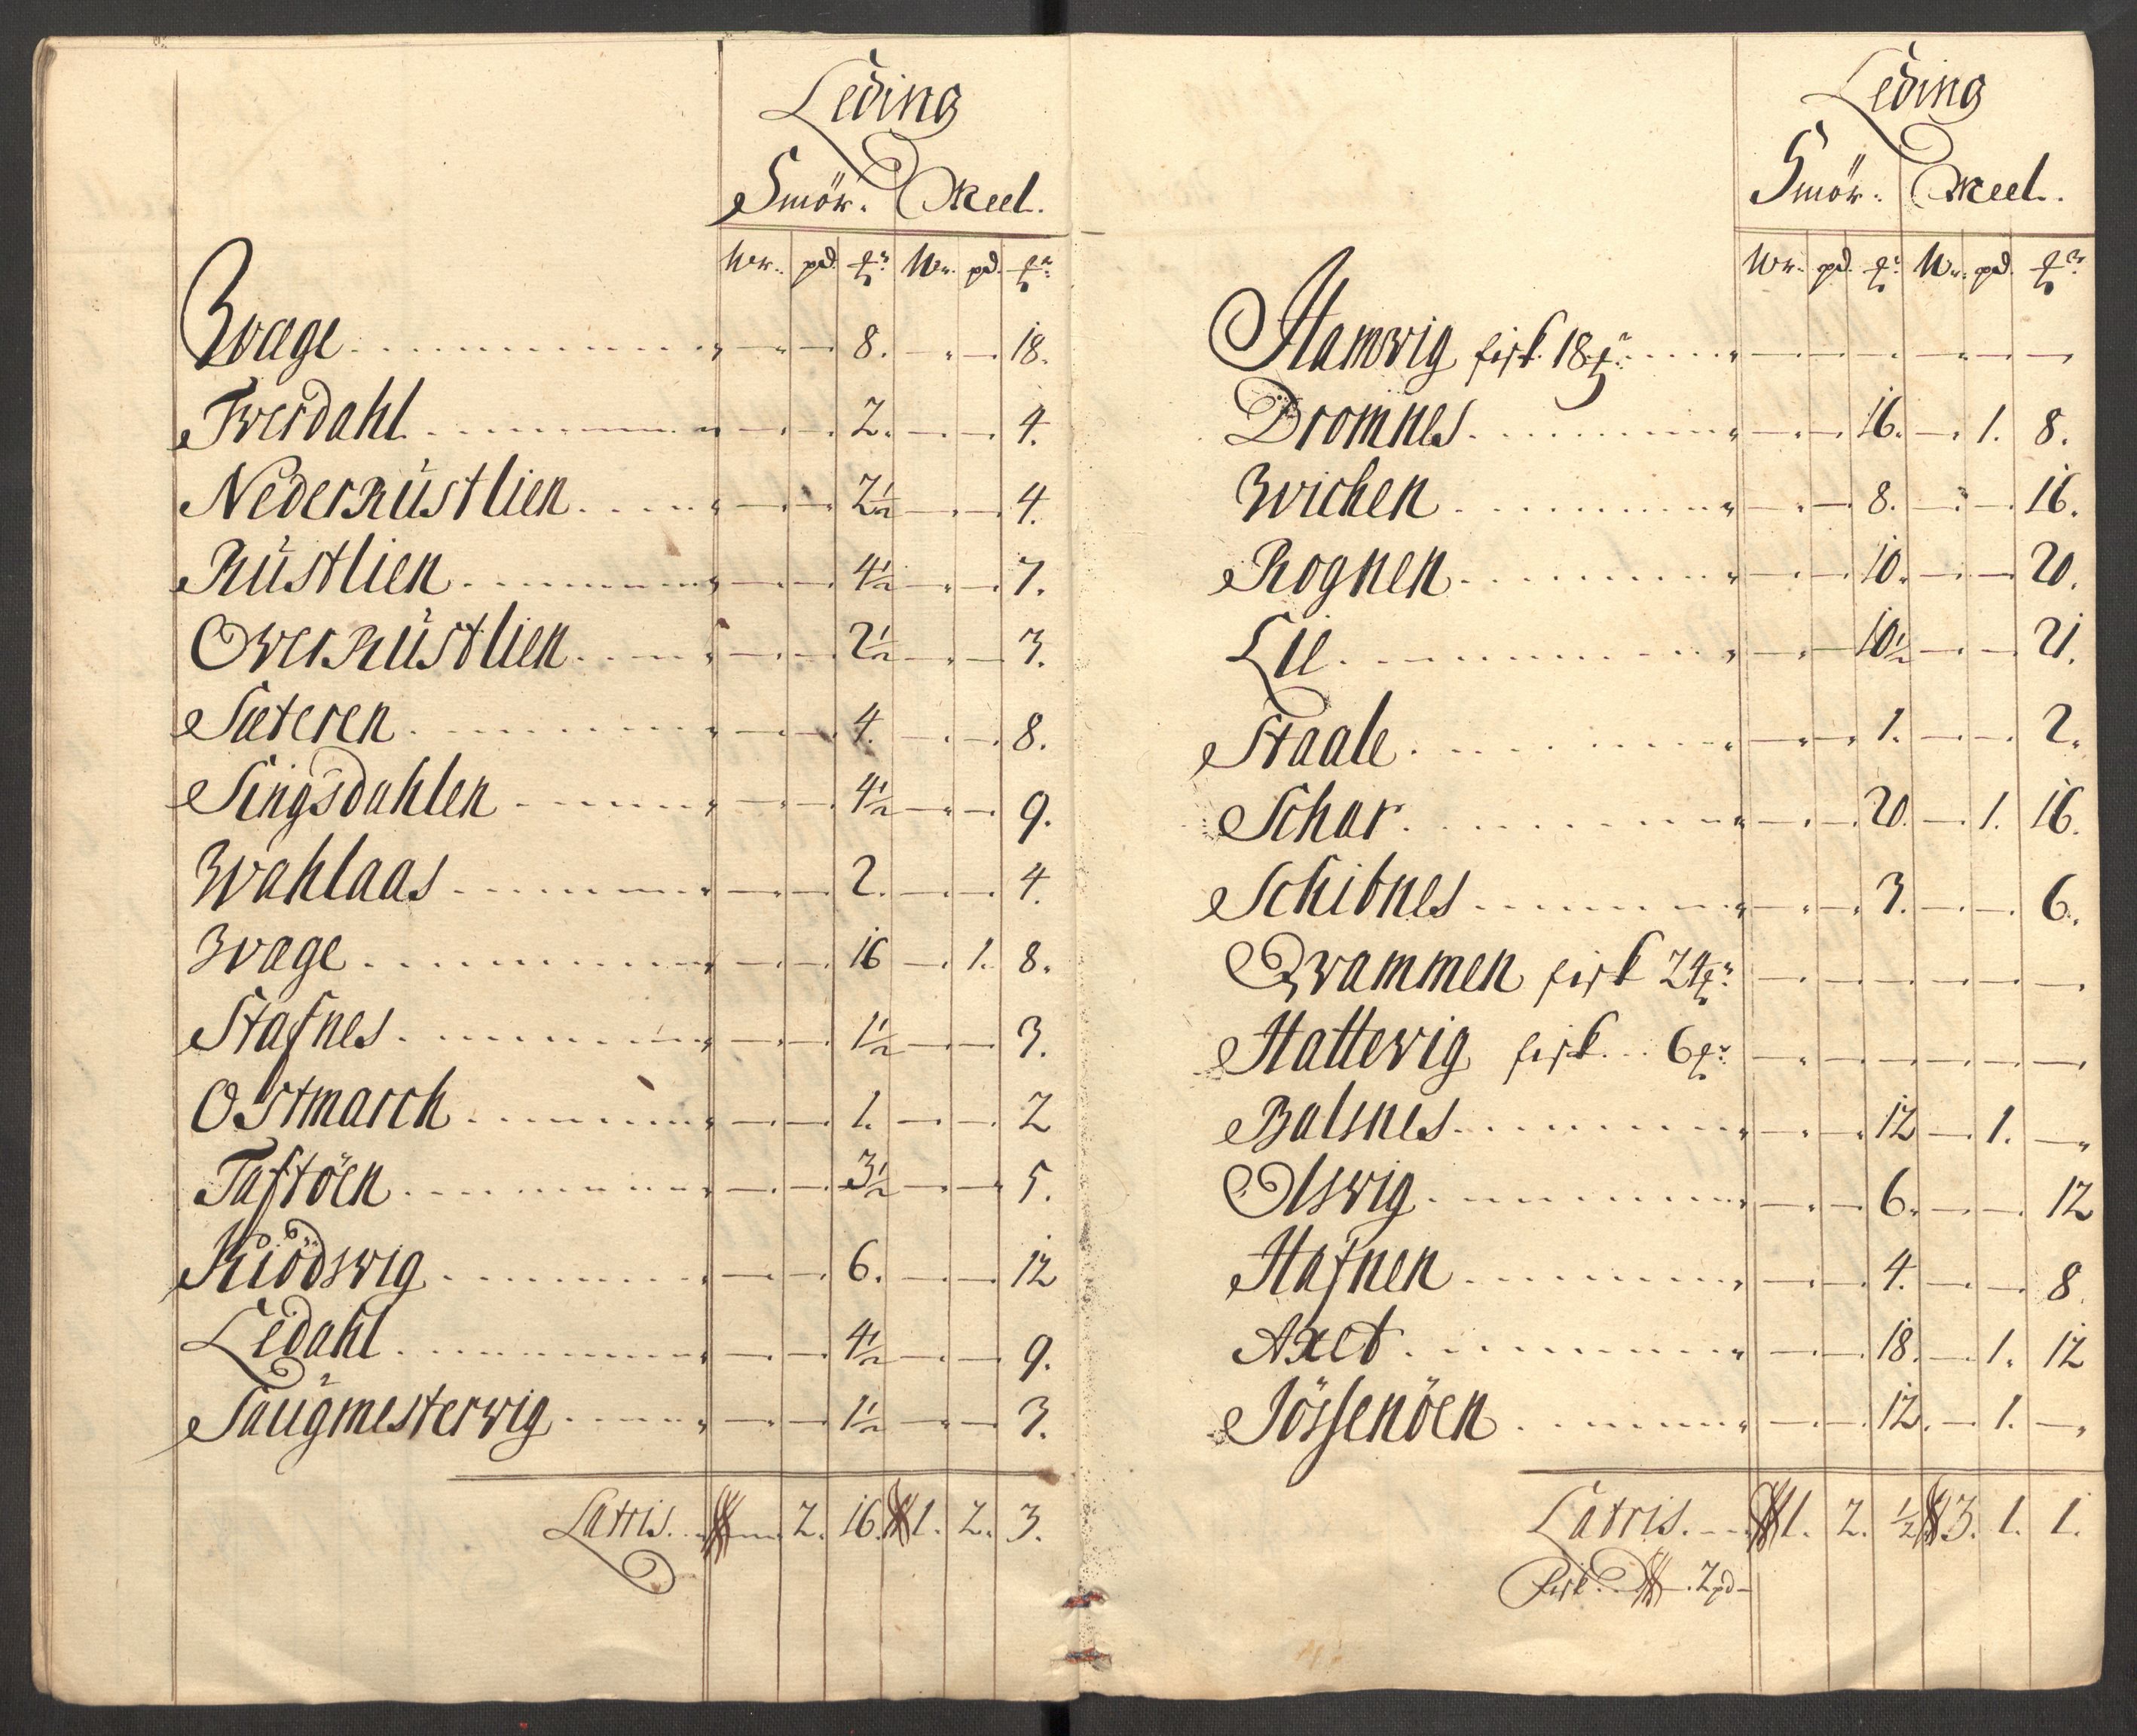 Leding
Smör. Meel.
Wr. pd. ℔r. Wr. pd. ℔r.
Wage 8. 18.
Twerdahl 2. 4.
Nederrüstlien 2½ 4.
Rüstlien 4½ 7.
Owerrüstlien 2½ 3.
Sæteren 4. 8.
Singsdahlen 4½ 9.
Wahlaas 2. 4.
Wage 16 1. 8.
Stafnes 1½ 3.
Ostmarch 1. 2
Taftöen 3½ 5.
Kiödswig 6. 12
Ledahl 4½ 9.
Saügmesterwig 1½ 3.
Latris. 2. 16. 1. 2. 3.
Leding
Smör. Meel.
Wr. pd. ℔r. Wr. pd. ℔r.
Hamwig fisk 18 ℔r
Dromnes 16. 1. 8.
Wichen 8. 16.
Rognen 10. 20.
Lie 10½ 21.
Staale 1. 2.
Schar 20. 1. 16.
Schibnes 3. 6.
Qwammen fisk 24 ℔r
Hattewig fisk 6 ℔r
Balsnes 12 1.
Olswig 6. 12
Hafnen 4. 8
Axet 18. 1. 12
Jössenöen 12. 1.
Latris. 1. 2. ½ 3. 1. 1.
Fisk 2 pd